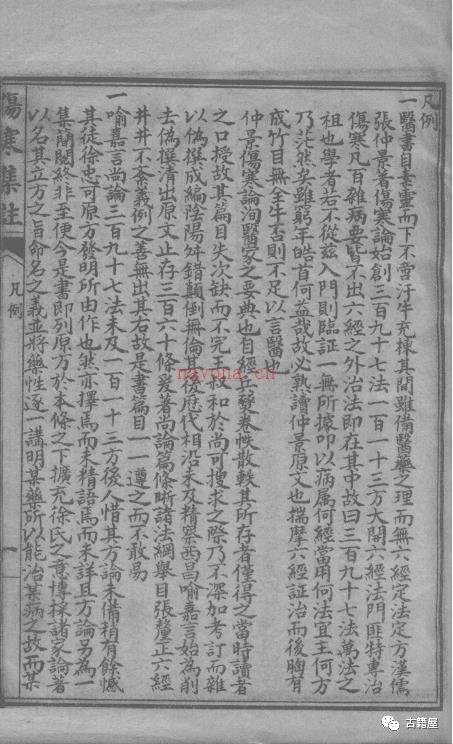 凡例
一醫書自素靈而下不啻汗牛充棟其間雖備醫藥之理而無六經定法定方漢儒
張仲景著傷寒論始創三百九十七法一百一十三方大開六經法門匪特專治
傷寒凡百雜病要皆不出六經之外治法即在其中故曰三百九十七法萬法之
祖也學者若不從茲入門則臨証一無所據叩以病属何經當用何法宜主何方
乃茫然矣雖窮年皓首何益哉故必熟讀仲景原文也揣摩六經証治而後胸有
成竹目無全牛否則不足以言醫也
仲景傷寒論洵醫家之要典也自經兵燹卷帙散軼其所存者僅得之當時讀者
之口授故其篇目失次缺而不完王叔和於尚可搜求之際乃不深加考訂而雜
以偽撰成編陰陽舛錯顛倒無倫其後歷代相沿未及精察西昌喻嘉言始為削
去偽撰清出原文止存三百六十條爰著尚論篇條晰諸法綱舉目張釐正六經
井井不紊義例之善無出其右故是書篇目一一遵之而不敢易
一喻嘉言尚論三百九十七法未及一百一十三方後人惜其方論未備稍有餘憾
其徒徐忠可原方發明所由作也然亦擇焉而未精語焉而未詳且方論另為一
集簡閱終非至便今是書即列原方於本條之下擴充徐氏之意博採諸家論著
以名其立方之旨命名之義並將藥性逐一講明某藥所以能治某病之故而某
傷寒集註
凡例
一
nayona.cn
古籍屋